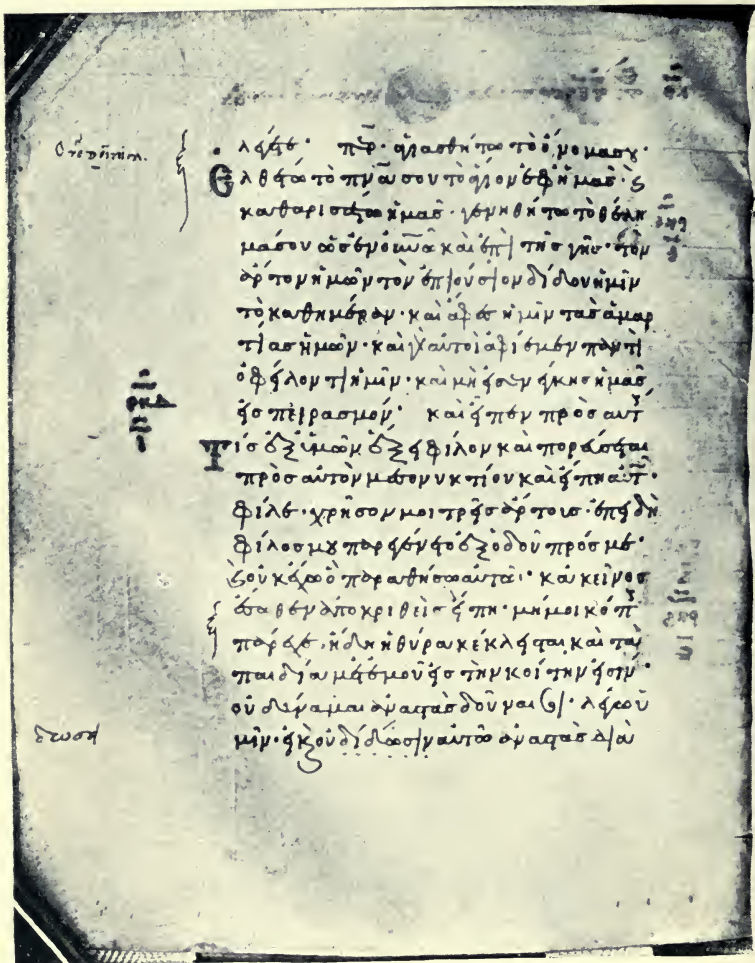 λέγεται· περ· ἁγιασθήτω τὸ ὄνομα σου·
Ἐλθέτω τὸ πνα σου τὸ ἅγιον ἐφ ἡμᾶς· καὶ
καθαρισάτω ἡμᾶς· γενηθήτω τὸ θέλη
μα σου ὡς ἐν οὐνω καὶ ἐπὶ τῆς γῆς· τὸν
ἄρτον ἡμῶν τὸν ἐπιούσιον δίδου ἡμῖν
τὸ καθημέραν· καὶ ἄφες ἡμῖν τὰς ἁμαρ
τίας ἡμῶν· καὶ γὰρ αὐτοὶ ἀφίεμεν παντὶ
ὀφείλοντι ἡμῖν· καὶ μὴ εἰσενείκης ἡμᾶς
εἰς πειρασμόν· καὶ εἶπεν πρὸς αὐτ
Τίς ἐξ ὑμῶν ἕξει φίλον καὶ πορεύσεται
πρὸς αὐτὸν μεσονυκτίου καὶ εἴπη αὐτ·
φίλε· χρῆσον μοι τρεῖς ἄρτους· ἐπειδὴ
φίλος μου παρεγένετο ἐξ ὁδοῦ πρός με·
καὶ οὐκ ἔχω ὃ παραθήσω αὐτῶ· κακεῖνος
ἔσωθεν ἀποκριθεὶς εἴπη· μή μοι κόπ
πάρεχε· ἤδη ἡ θύρα κέκλεισται καὶ τὰ
παιδία μετ ἐμοῦ εἰς τὴν κοίτην εἰσίν·
οὐ δύναμαι ἀναστὰς δοῦναι σοι· λέγω ὑ
μῖν· εἰ καὶ οὐ δίδωσιν αὐτῶ ἀναστὰς διὰ
δώσει